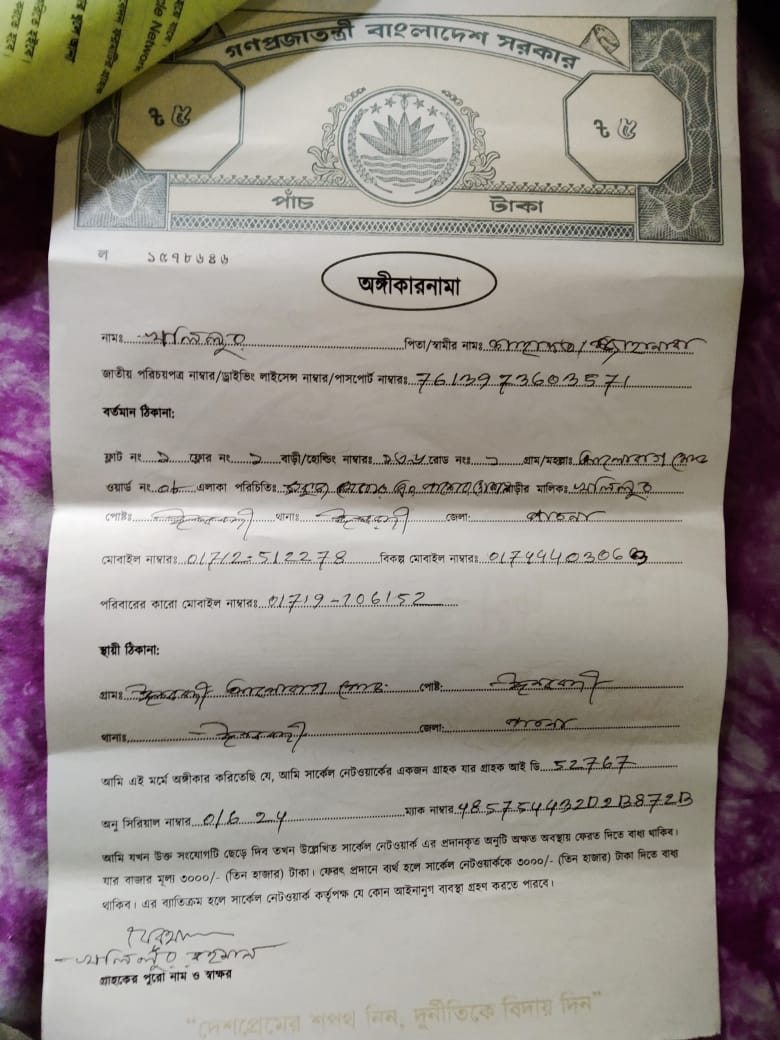 ple Network
গণপ্রজাতন্ত্রী বাংলাদেশ সরকার
৳ ৫ ৳ ৫
পাঁচ টাকা
ল ১৫৭৮৬৪৬
অঙ্গীকারনামা
নামঃ খলিলুর পিতা/স্বামীর নামঃ
জাতীয় পরিচয়পত্র নাম্বার/ড্রাইভিং লাইসেন্স নাম্বার/পাসপোর্ট নাম্বারঃ 7613973603571
বর্তমান ঠিকানা:
ফ্লাট নং ১ ফ্লোর নং ১ বাড়ী/হোল্ডিং নাম্বারঃ রোড নংঃ ১ গ্রাম/মহল্লাঃ
ওয়ার্ড নং 08 এলাকা পরিচিতিঃ বাড়ীর মালিকঃ খলিলুর
পোষ্টঃ ঈশ্বরদী থানাঃ ঈশ্বরদী জেলা: পাবনা
মোবাইল নাম্বারঃ 01712-512278 বিকল্প মোবাইল নাম্বারঃ
পরিবারের কারো মোবাইল নাম্বারঃ 01719-706152
স্থায়ী ঠিকানা:
গ্রামঃ ঈশ্বরদী পোষ্ট: ঈশ্বরদী
থানাঃ ঈশ্বরদী জেলা: পাবনা
আমি এই মর্মে অঙ্গীকার করিতেছি যে, আমি সার্কেল নেটওয়ার্কের একজন গ্রাহক যার গ্রাহক আই ডি 52767
অনু সিরিয়াল নাম্বার 016 24 ম্যাক নাম্বার 485754432D2B872B
আমি যখন উক্ত সংযোগটি ছেড়ে দিব তখন উল্লেখিত সার্কেল নেটওয়ার্ক এর প্রদানকৃত অনুটি অক্ষত অবস্থায় ফেরত দিতে বাধ্য থাকিব।
যার বাজার মূল্য ৩০০০/- (তিন হাজার) টাকা। ফেরৎ প্রদানে ব্যর্থ হলে সার্কেল নেটওয়ার্ককে ৩০০০/- (তিন হাজার) টাকা দিতে বাধ্য
থাকিব। এর ব্যাতিক্রম হলে সার্কেল নেটওয়ার্ক কর্তৃপক্ষ যে কোন আইনানুগ ব্যবস্থা গ্রহণ করতে পারবে।
খলিলুর রহমান
গ্রাহকের পুরো নাম ও স্বাক্ষর
“দেশপ্রেমের শপথ নিন, দুর্নীতিকে বিদায় দিন”